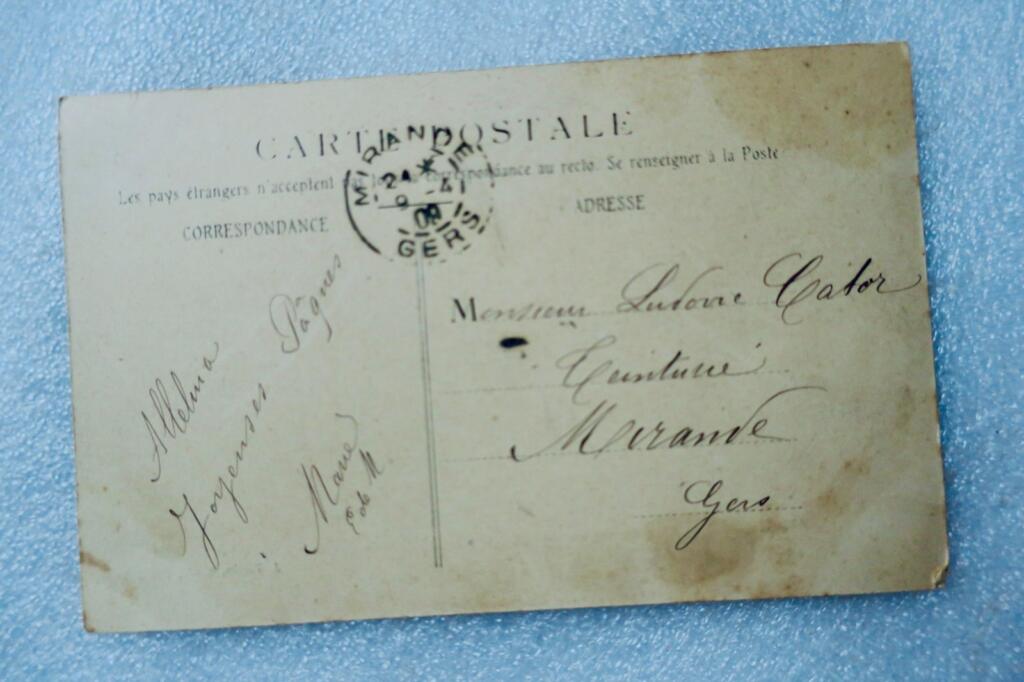 CARTE POSTALE
Les pays étrangers n'acceptent pas la correspondance au recto. Se renseigner à la Poste
CORRESPONDANCE
ADRESSE
MIRANDE
GERS
Alleluia
Joyeuses Pâques
Marie
Monsieur Ludovic Cator
Teinturié
Mirande
Gers